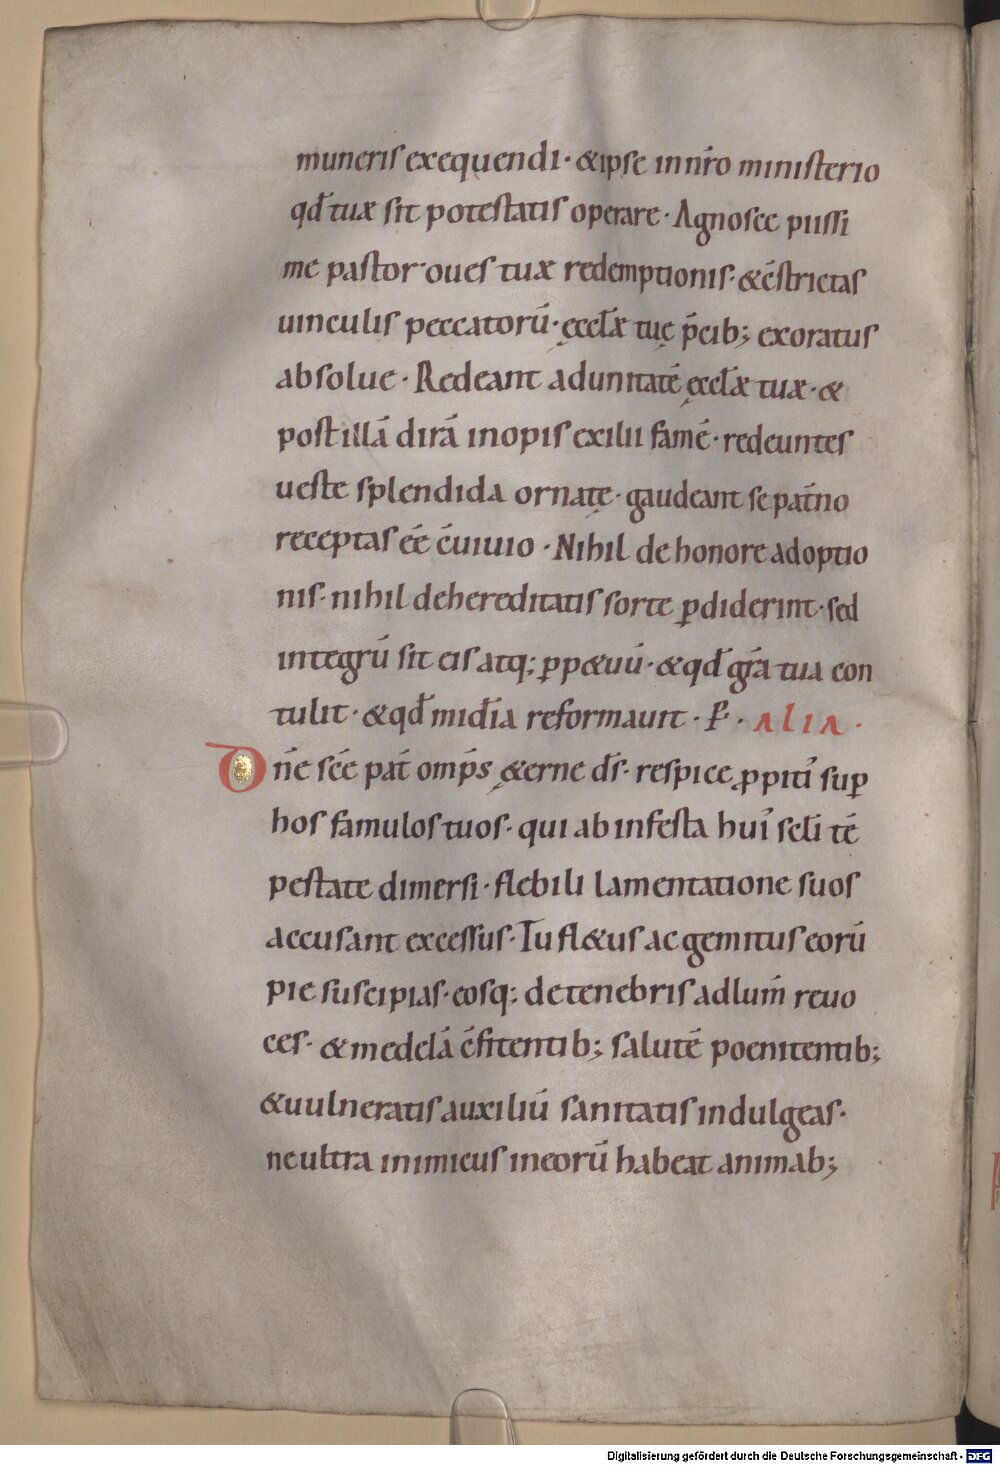 muneris exequendi · & ipse in nr̄o ministerio
qđ tuæ sit potestatis operare · Agnosce piissi
me pastor oues tuæ redemptionis · & c̄strictas
uinculis peccatorū · ęccl̄æ tuę p̄cib; exoratus
absolue · Redeant ad unitatē ęccl̄æ tuæ · &
post illā dirā inopis exilii famē · redeuntes
ueste splendida ornatę · gaudeant se pat̄no
receptas ēē c̄uiuio · Nihil de honore adoptio
nis · nihil de hereditatis sorte ꝑdiderint · sed
integrū sit eis atq; ꝑp&uū · & qđ gr̄a tua con
tulit · & qđ mid̄ia reformauit · P · ALIA ·
Dn̄e sc̄e pat̄ omp̄s ę&erne d̄s · respice ꝓpiti᾽ suꝑ
hos famulos tuos · qui ab infesta hui᾽ sc̄li tē
pestate dimersi · flebili lamentatione suos
accusant excessus · Tu fl&us ac gemitus eorū
pie suscipias · eosq; de tenebris ad lum̄ reuo
ces · & medelā c̄fitentib; salutē poenitentib;
& uulneratis auxiliū sanitatis indulgeas ·
ne ultra inimicus in eorū habeat animab;
Digitalisierung gefördert durch die Deutsche Forschungsgemeinschaft - DFG